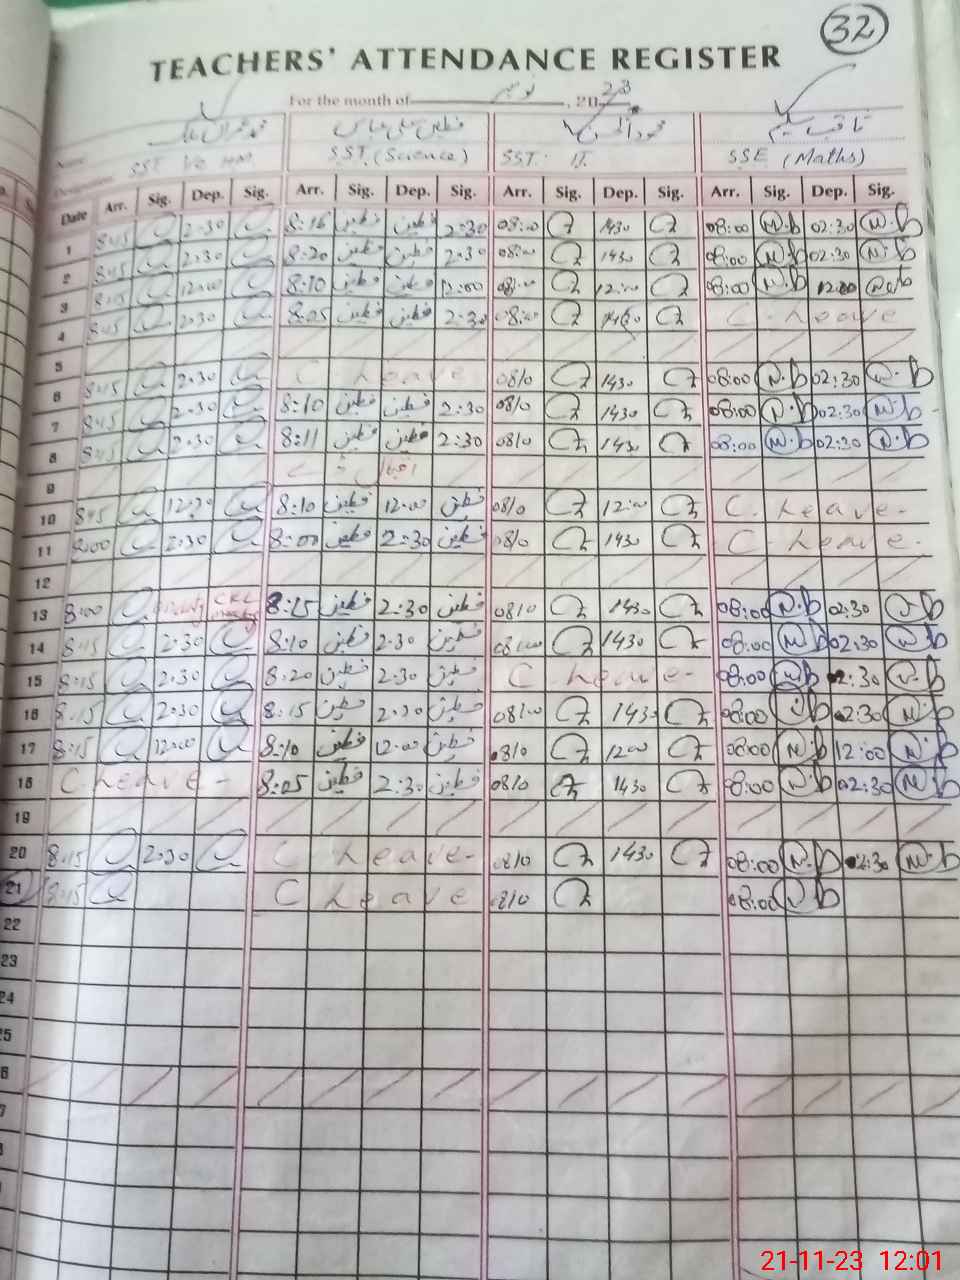 32
TEACHERS' ATTENDANCE REGISTER
For the month of نومبر , 20 23
Name
Designation SST SST (Science) SST IT SSE (Maths)
Date Arr. Sig. Dep. Sig. Arr. Sig. Dep. Sig. Arr. Sig. Dep. Sig. Arr. Sig. Dep. Sig.
1 8:15 2:30 8:16 فطین فطین 2:30 08:00 1430 08:00 M.b 02:30 M.b
2 8:15 2:30 8:20 فطین فطین 2:30 08:00 1430 08:00 M.b 02:30 M.b
3 8:15 12:00 8:10 فطین فطین 12:00 08:00 12:00 08:00 M.b 12:00 M.b
4 8:15 2:30 8:05 فطین فطین 2:30 08:00 1430 C. Leave
5
6 8:15 2:30 C. Leave 0810 1430 08:00 M.b 02:30 M.b
7 8:15 2:30 8:10 فطین فطین 2:30 0810 1430 08:00 M.b 02:30 M.b
8 8:15 2:30 8:11 فطین فطین 2:30 0810 1430 08:00 M.b 02:30 M.b
9 اقبال ڈے
10 8:15 12:30 8:10 فطین 12:00 فطین 0810 12:00 C. Leave-
11 8:00 2:30 8:00 فطین 2:30 فطین 0810 1430 C. Leave-
12
13 8:00 8:15 فطین 2:30 فطین 0810 1430 08:00 M.b 02:30 M.b
14 8:15 2:30 8:10 فطین 2:30 فطین 08:00 1430 08:00 M.b 02:30 M.b
15 8:15 2:30 8:20 فطین 2:30 فطین C. Leave- 08:00 M.b 2:30 M.b
16 8:15 2:30 8:15 فطین 2:30 فطین 08:00 1430 08:00 M.b 2:30 M.b
17 8:15 12:00 8:10 فطین 12:00 فطین 0810 1200 08:00 M.b 12:00 M.b
18 C. Leave- 8:05 فطین 2:30 فطین 0810 1430 08:00 M.b 02:30 M.b
19
20 8:15 2:30 C. Leave- 0810 1430 08:00 M.b 2:30 M.b
21 8:15 C Leave 0810 08:00 M.b
22
23
24
25
6
7
21-11-23 12:01